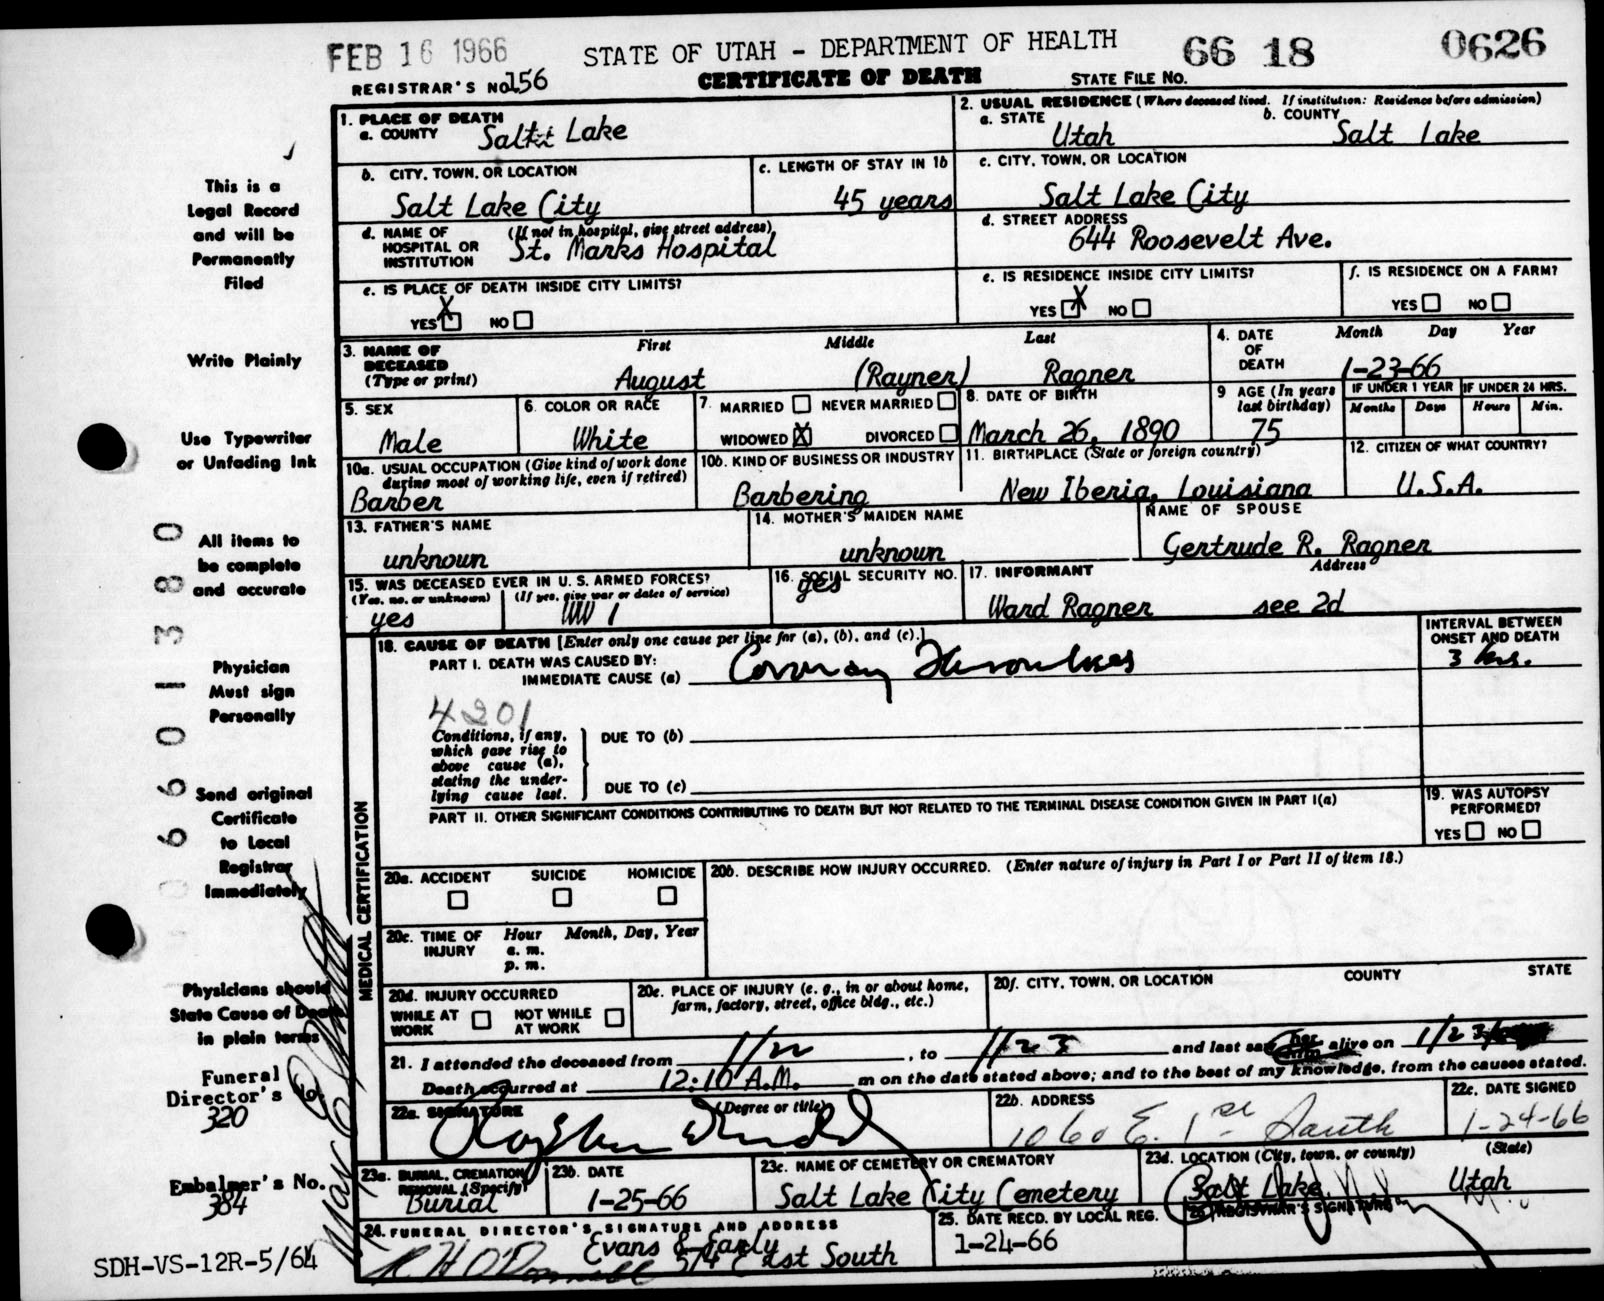 FEB 16 1966 STATE OF UTAH - DEPARTMENT OF HEALTH 66 18 0626
REGISTRAR'S NO. 156 CERTIFICATE OF DEATH STATE FILE NO.
1. PLACE OF DEATH
a. COUNTY Salt Lake
2. USUAL RESIDENCE (Where deceased lived. If institution: Residence before admission)
a. STATE Utah b. COUNTY Salt Lake
b. CITY, TOWN, OR LOCATION Salt Lake City
c. LENGTH OF STAY IN 1b 45 years
c. CITY, TOWN, OR LOCATION Salt Lake City
d. NAME OF HOSPITAL OR INSTITUTION (If not in hospital, give street address) St. Marks Hospital
d. STREET ADDRESS 644 Roosevelt Ave.
e. IS PLACE OF DEATH INSIDE CITY LIMITS?
YES X NO
e. IS RESIDENCE INSIDE CITY LIMITS?
YES X NO
f. IS RESIDENCE ON A FARM?
YES NO
3. NAME OF DECEASED (Type or print)
First Middle Last
August (Rayner) Ragner
4. DATE OF DEATH Month Day Year
1-23-66
5. SEX Male
6. COLOR OR RACE White
7. MARRIED NEVER MARRIED
WIDOWED X DIVORCED
8. DATE OF BIRTH March 26, 1890
9 AGE (In years last birthday) 75
IF UNDER 1 YEAR Months Days
IF UNDER 24 HRS. Hours Min.
10a. USUAL OCCUPATION (Give kind of work done during most of working life, even if retired) Barber
10b. KIND OF BUSINESS OR INDUSTRY Barbering
11. BIRTHPLACE (State or foreign country) New Iberia, Louisiana
12. CITIZEN OF WHAT COUNTRY? U.S.A.
13. FATHER'S NAME unknown
14. MOTHER'S MAIDEN NAME unknown
NAME OF SPOUSE Gertrude R. Ragner
15. WAS DECEASED EVER IN U.S. ARMED FORCES?
(Yes, no, or unknown) (If yes, give war or dates of service)
yes WW 1
16. SOCIAL SECURITY NO. yes
17. INFORMANT Address
Ward Ragner see 2d
MEDICAL CERTIFICATION
18. CAUSE OF DEATH [Enter only one cause per line for (a), (b), and (c).]
PART I. DEATH WAS CAUSED BY:
IMMEDIATE CAUSE (a)
INTERVAL BETWEEN ONSET AND DEATH
3 hrs.
4201
Conditions, if any, which gave rise to above cause (a), stating the underlying cause last.
DUE TO (b)
DUE TO (c)
PART II. OTHER SIGNIFICANT CONDITIONS CONTRIBUTING TO DEATH BUT NOT RELATED TO THE TERMINAL DISEASE CONDITION GIVEN IN PART I(a)
19. WAS AUTOPSY PERFORMED?
YES NO
20a. ACCIDENT SUICIDE HOMICIDE
20b. DESCRIBE HOW INJURY OCCURRED. (Enter nature of injury in Part I or Part II of item 18.)
20c. TIME OF INJURY Hour Month, Day, Year
a. m.
p. m.
20d. INJURY OCCURRED
WHILE AT WORK NOT WHILE AT WORK
20e. PLACE OF INJURY (e. g., in or about home, farm, factory, street, office bldg., etc.)
20f. CITY, TOWN, OR LOCATION COUNTY STATE
21. I attended the deceased from 1/22, to 1/23 and last saw her him alive on 1/23
Death occurred at 12:10 A.M. m on the date stated above; and to the best of my knowledge, from the causes stated.
22a. SIGNATURE (Degree or title)
22b. ADDRESS 1060 E. 1st South
22c. DATE SIGNED 1-24-66
23a. BURIAL, CREMATION, REMOVAL (Specify) Burial
23b. DATE 1-25-66
23c. NAME OF CEMETERY OR CREMATORY Salt Lake City Cemetery
23d. LOCATION (City, town, or county) (State)
Salt Lake, Utah
24. FUNERAL DIRECTOR'S SIGNATURE AND ADDRESS
Evans & Early
R H O'Donnell 574 East South
25. DATE RECD. BY LOCAL REG. 1-24-66
26. REGISTRAR'S SIGNATURE
This is a
Legal Record
and will be
Permanently
Filed
Write Plainly
Use Typewriter
or Unfading Ink
All items to
be complete
and accurate
Physician
Must sign
Personally
Send original
Certificate
to Local
Registrar
Immediately
Physicians should
State Cause of Death
in plain terms
Funeral
Director's No.
320
Embalmer's No.
384
SDH-VS-12R-5/64
06601380